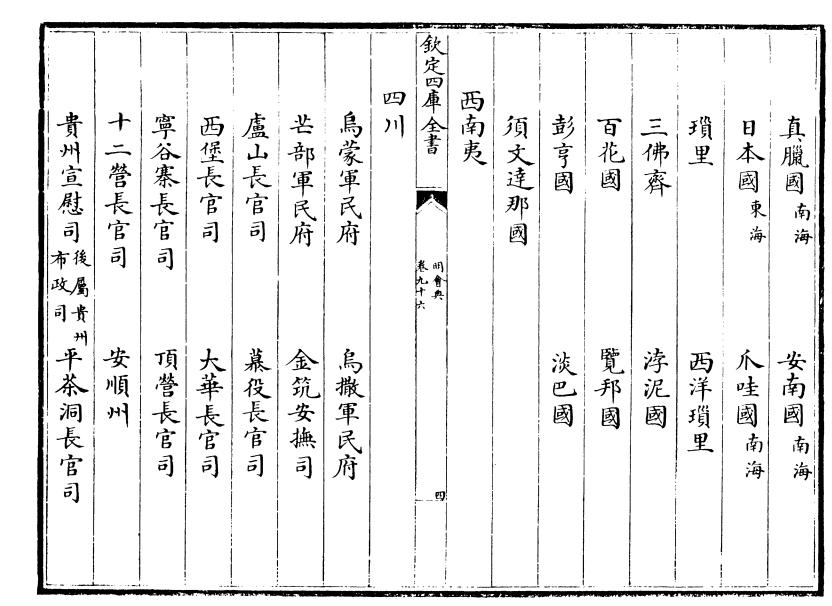 真臘國南海　安南國南海
日本國東海　爪哇國南海
瑣里　西洋瑣里
三佛齊　浡泥國
百花國　覽邦國
彭亨國　淡巴國
須文達那國
西南夷
欽定四庫全書　明會典卷九十六　四
四川
烏蒙軍民府　烏撒軍民府
芒部軍民府　金筑安撫司
盧山長官司　慕役長官司
西堡長官司　大華長官司
寧谷寨長官司　頂營長官司
十二營長官司　安順州
貴州宣慰司後屬貴州布政司　平茶洞長官司